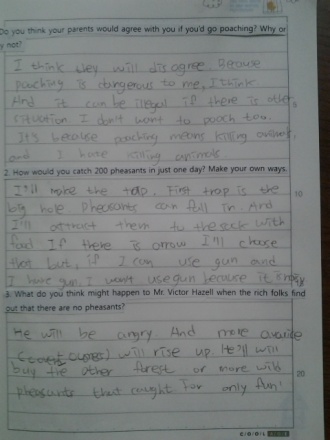 Do you think your parents would agree with you if you'd go poaching? Why or
y not?
I think they will disagree. Becouse
poaching is dangerous to me, I think.
And it can be illegal if there is other
situation I don't want to pooch too.
It's because poaching means killing animals,
and I hate killing animals
2. How would you catch 200 pheasants in just one day? Make your own ways.
I'll make the trap. First trap is the
10
big hole Pheasants can fall in. And
I'll attract them to the with
food If there is arrow I'll choose
that but, if I can use gun and
I have gun, I won't use gun because it
3. What do you think might happen to Mr. Victor Hazell when the rich folks find
out that there are no pheasants?
He will be angry And more avarice
will rise up. He'll will
buy the other forest or more wild
20
pheasants that caught for only fun!
COOL